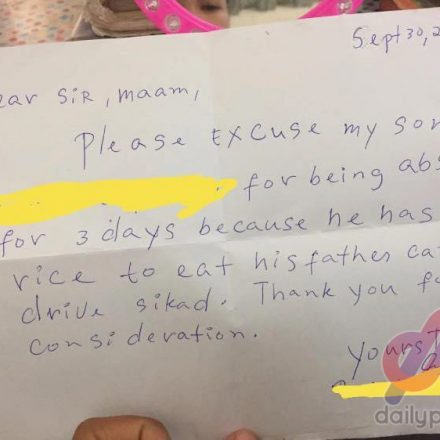 Sept 30, 2
ear SIR, maam,
Please Excuse my son
for being abs
for 3 days because he has
rice to eat his father ca
drive sikad. Thank you fo
consideration.
Yours T
dailyp